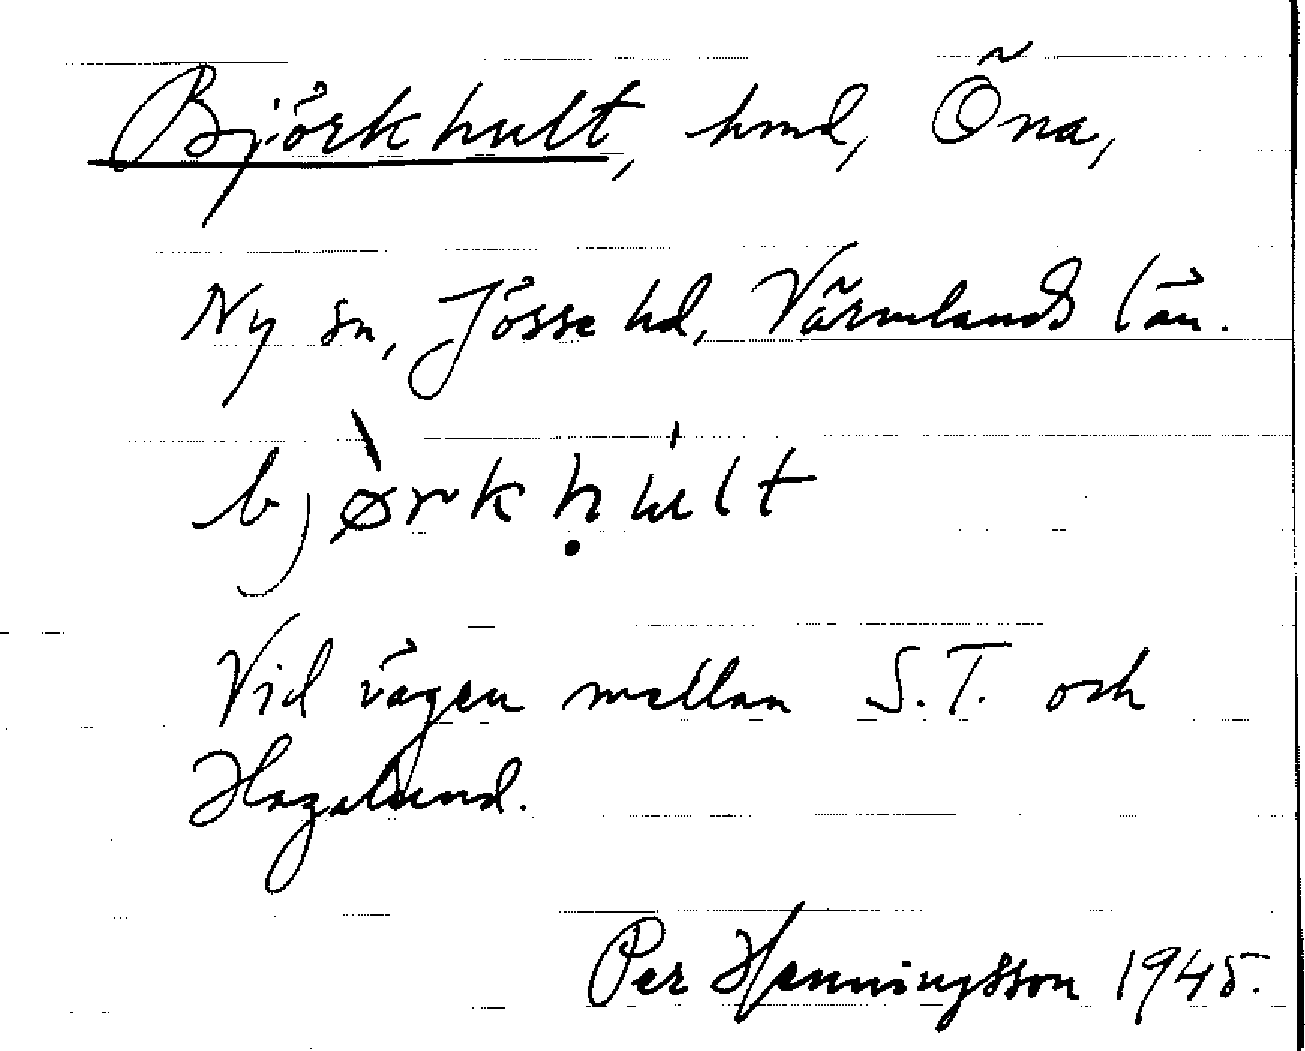 Björkhult, hmd, Öna,
Ny sn, Jösse hd, Värmlands län.
bjø̀rkḥúlt
Vid vägen mellan S.T. och
Hagalund.
Per Henningsson 1945.